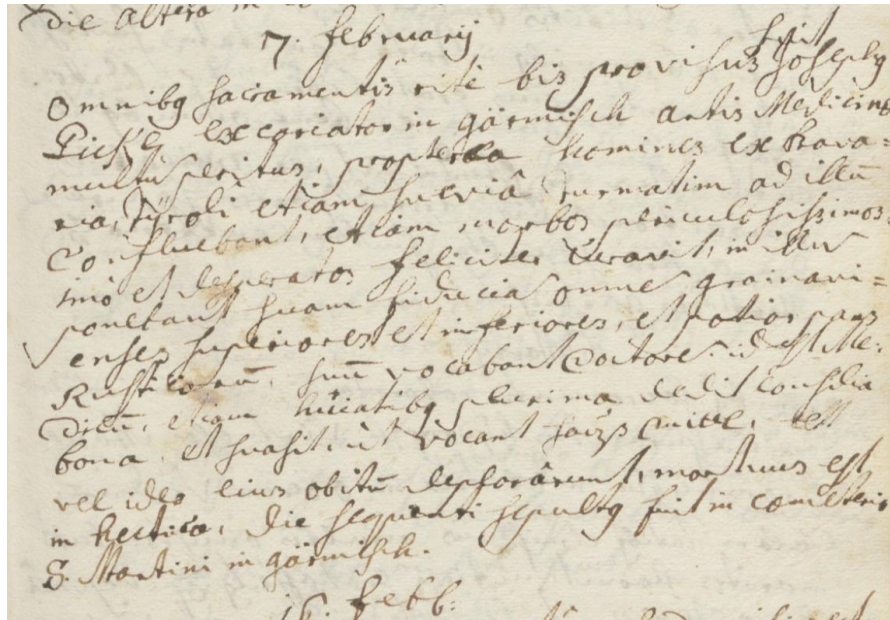 die altera in
17. februarij
fuit
Omnibq sacramentis rite bis provisus Josephq
excoriator in gärmisch artis Medicinae
multu peritus, propterea homines ex bava=
ria, Tyroli etiam suevia turmatim ad illu
Confluebant, etiam morbos periculosissimos
imo et desperatos feliciter curavit, in illu
ponebant suam fiducia omnes grainavi=
enses superiores et inferiores, et potior pars
Rusticoru, suu vocabant Doctore. id est Me:
dicu, etiam plurima dedit consilia
bona, et suasit ut vocant hauß mittl, est
vel ideo eius obitu deplorarunt, mortuus est
in hectica, die sequenti sepultq fuit in coemeterio
S. Martini in gärmisch.
febb: